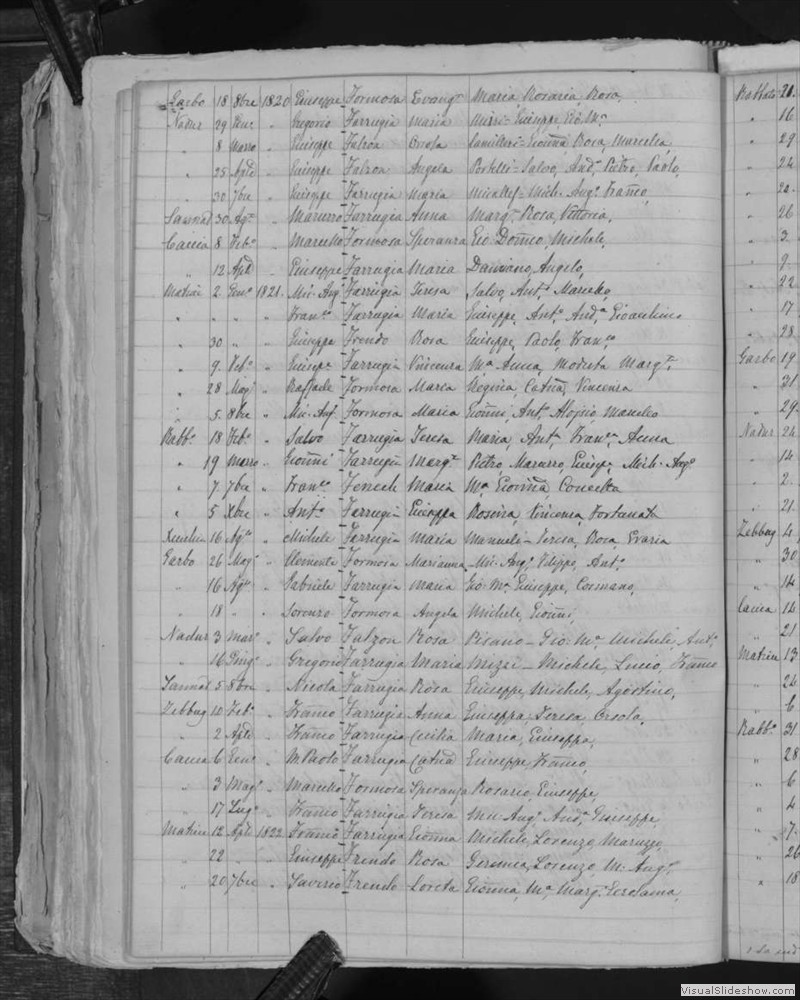 Garbo 18 8bre 1820 Giuseppe Formosa Evangta Maria, Rosaria, Rosa,
Nadur 29 Genr " Gregorio Farrugia Maria Mizzi - Giuseppe Gio Ma
" 8 Marzo " Giuseppe Falzon Orsola Camilleri - Rosa, Marcella,
" 25 Aple " Giuseppe Falzon Angela Portelli - Salvo, Anda Pietro, Paolo,
" 30 7bre " Giuseppe Farrugia Maria Micallef - Mich. Ango Franco,
Sannat 30 Agto " Maruzzo Farrugia Anna Marga Rosa, Vittoria,
Caccia 8 Febo " Marcello Formosa Speranza Gio Domco, Michele,
" 12 Aple " Giuseppe Farrugia Maria Damiano, Angelo,
2 Geno 1821 Mic. Ango Farrugia Teresa Salvo, Anto Marcello,
" " " " Franco Farrugia Maria Giuseppe, Anto Anda Gioachino
" 30 " " Giuseppe Frendo Rosa Giuseppe, Paolo, Franco
" 9 Febo " Giusepe Farrugia Vincenza Ma Anna, Modesta Marga
" 28 Mago " Raffaele Formosa Maria Regina, Catna, Vincenza
" 5 8bre " Mic. Ango Formosa Maria Gionni, Anto Alojsio, Marcello
Rabbo 18 Febo " Salvo Farrugia Teresa Maria, Anta, Franca, Anna
" 19 Marzo " Gionni Farrugia Marga Pietro, Maruzzo, Giuspe, Mich. Ango
" 7 7bre " Franco Fenech Maria Ma Gionna, Concetta
" 5 Xbre " Anto Farrugia Giuseppa Rosina, Vincenza, Fortunata
16 Agto " Michele Farrugia Maria Manueli - Teresa, Rosa, Grazia
Garbo 26 Mago " Clemente Formosa Marianna Mic. Ango, Filippo, Anto
" 16 Agto " Gabriele Farrugia Maria Gio Ma, Giuseppe, Cosmano,
" 18 " " Lorenzo Formosa Angela Michele, Gionni,
Nadur 3 Maro " Salvo Falzon Rosa Pisano - Gio: Ma, Michele, Anto
" 16 Giugo " Gregorio Farrugia Maria Mizzi - Michele, Lucio, Franco
Sannat 5 8bre " Nicola Farrugia Rosa Giuseppe, Michele, Agostino,
Zebbug 10 Febo " Franco Farrugia Anna Giuseppa, Teresa, Orsola,
" 2 Aple " Franco Farrugia Cecilia Maria, Giuseppa,
Caccia 6 Geno " M. Paolo Farrugia Catna Giuseppe, Franco,
" 3 Mago " Marcello Formosa Speranza Rosario, Giuseppe,
" 17 Lugo " Franco Farrugia Teresa Mic. Ango, Anda, Giuseppe,
12 Aple 1822 Franco Farrugia Gionna Michele, Lorenzo, Maruzzo,
" 22 " " Giuseppe Frendo Rosa Geremia, Lorenzo, M. Ango
" 20 7bre " Saverio Frendo Loreta Gionna, Ma, Marga,
20
" 16
" 29
" 24
" 20
" 26
" 3
" 9
" 22
" 17
" 28
Garbo 19
" 31
" 29
Nadur 24
" 14
" 2
" 21
Zebbug 4
" 30
" 14
Caccia 14
" 21
13
" 24
" 6
Rabbo 31
" 28
" 6
" 4
" 7
" 26
" 18
VisualSlideshow.com